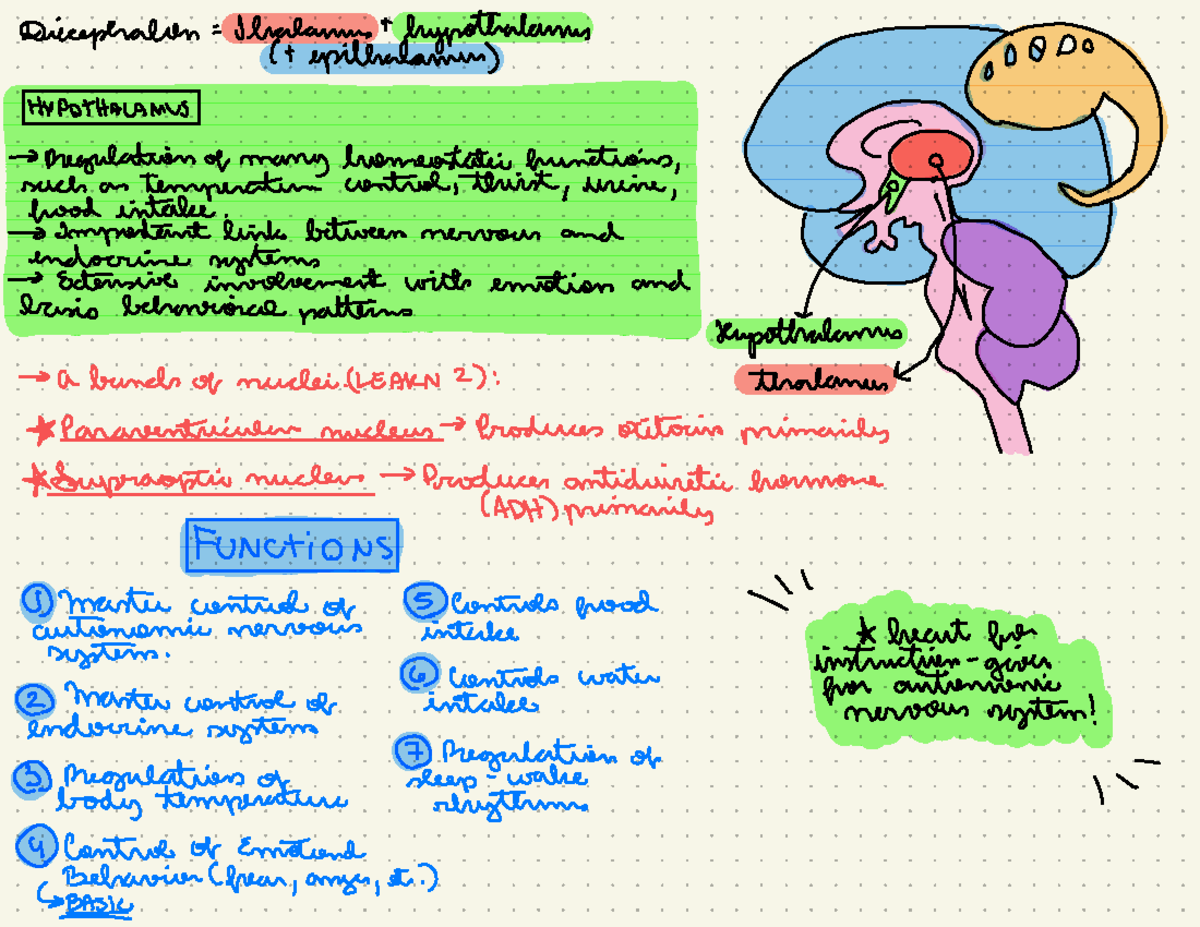 Diecephalon = Thalamus + hypothalamus
(+ epithalamus)
HYPOTHALAMUS
→ Regulation of many homeotatic functions,
such as temperature control, thirst, urine,
food intake.
→ Important link between nervous and
endocrine systems
→ Extensive involvement with emotion and
basic behavioral patterns
Hypothalamus
thalamus
→ A bunch of nuclei (LEARN 2):
★ Paraventricular nucleus → Produces oxitocin primarily
★ Supraoptic nucleus → Produces antidiuretic hormone
(ADH) primarily
FUNCTIONS
1 Master control of
autonomic nervous
system.
2 Master control of
endocrine systems
3 Regulation of
body temperature
4 Control of Emotional
Behavior (fear, anger, etc.)
↳ BASIC
5 Controls food
intake
6 Controls water
intake
7 Regulation of
sleep-wake
rhythms
★ heart for
instruction-giver
for autonomic
nervous system!